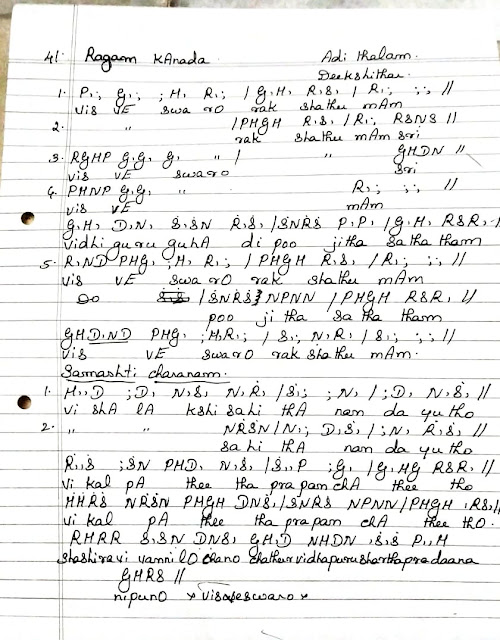 41. Ragam KAnada Adi thalam.
Deekshithar
1. P,; G,; ; M, R,; / G,M, R,S, / R,; ;; //
vis VE swa rO rak shathu mAm
2. " / PMGM R,S, / R,; RSNS //
rak shathu mAm sri
3. RGMP G,G, G, " / " GMDN //
vis VE swaro Sri
4. PMNP G,G, " R,; ;; //
vis VE mAm
G,M, D,N, S,SN R,S, / SNRS P,P, / G,M, RSR, //
vidhi guru guhA di poo jitha sa tha tham
5. R,ND PMG, ; M, R,; / PMGM R,S, / R,; ;; //
vis VE swa rO rak shathu mAm
Do / SNRS NPNN / PMGM RSR, //
poo ji tha sa tha tham
GMD,ND PMG, ; M,R,; / S,; N,R, / S,; ;; //
vis VE swarO rak shathu mAm.
Samashti charanam.
1. M,,D ;D, N,S, N,R, / S,; ; N, / ; D, N,S, //
vi shA lA kshi sahi thA nan da yutho
2. " " NRSN / N,; D,S, / ; N, R,S, //
sahi thA nan da yutho
R,,S ; SN PMD, N,S, / S,,P ; G, / G,MG RSR, //
vi kal pA thee tha prapan chA thee tho
MMRS NRSN PMGM DNS, / SNRS NPNN / PMGM ,RS, //
vi kal pA thee tha prapan chA thee thO.
RMRR S,SN DNS, GM,D NMDN ,S,S P,,M
shashiravi vamni lO chano chathurvidhapurusharthapradaana
GMRS //
nipunO * visveswaro *